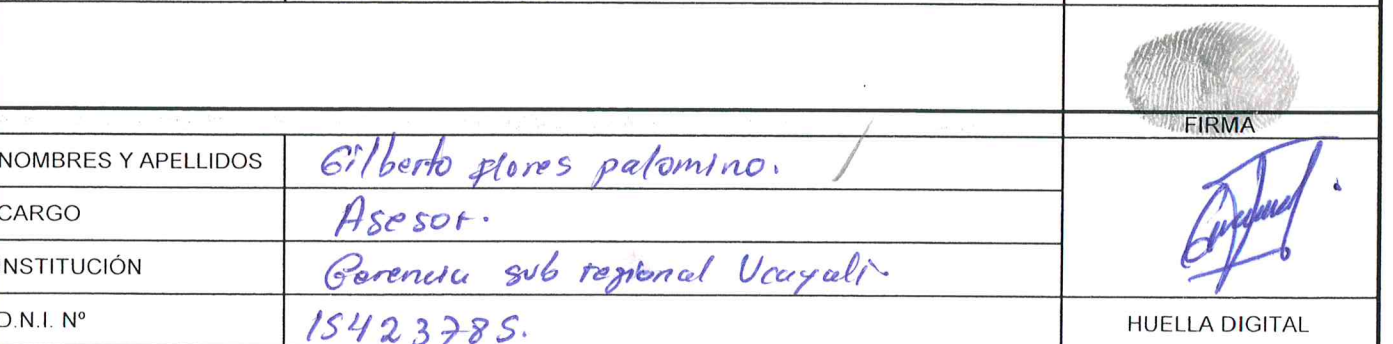 FIRMA
NOMBRES Y APELLIDOS Gilberto flores palomino.
CARGO Asesor.
INSTITUCIÓN Gerencia sub regional Ucayali
D.N.I. Nº 15423785.
HUELLA DIGITAL